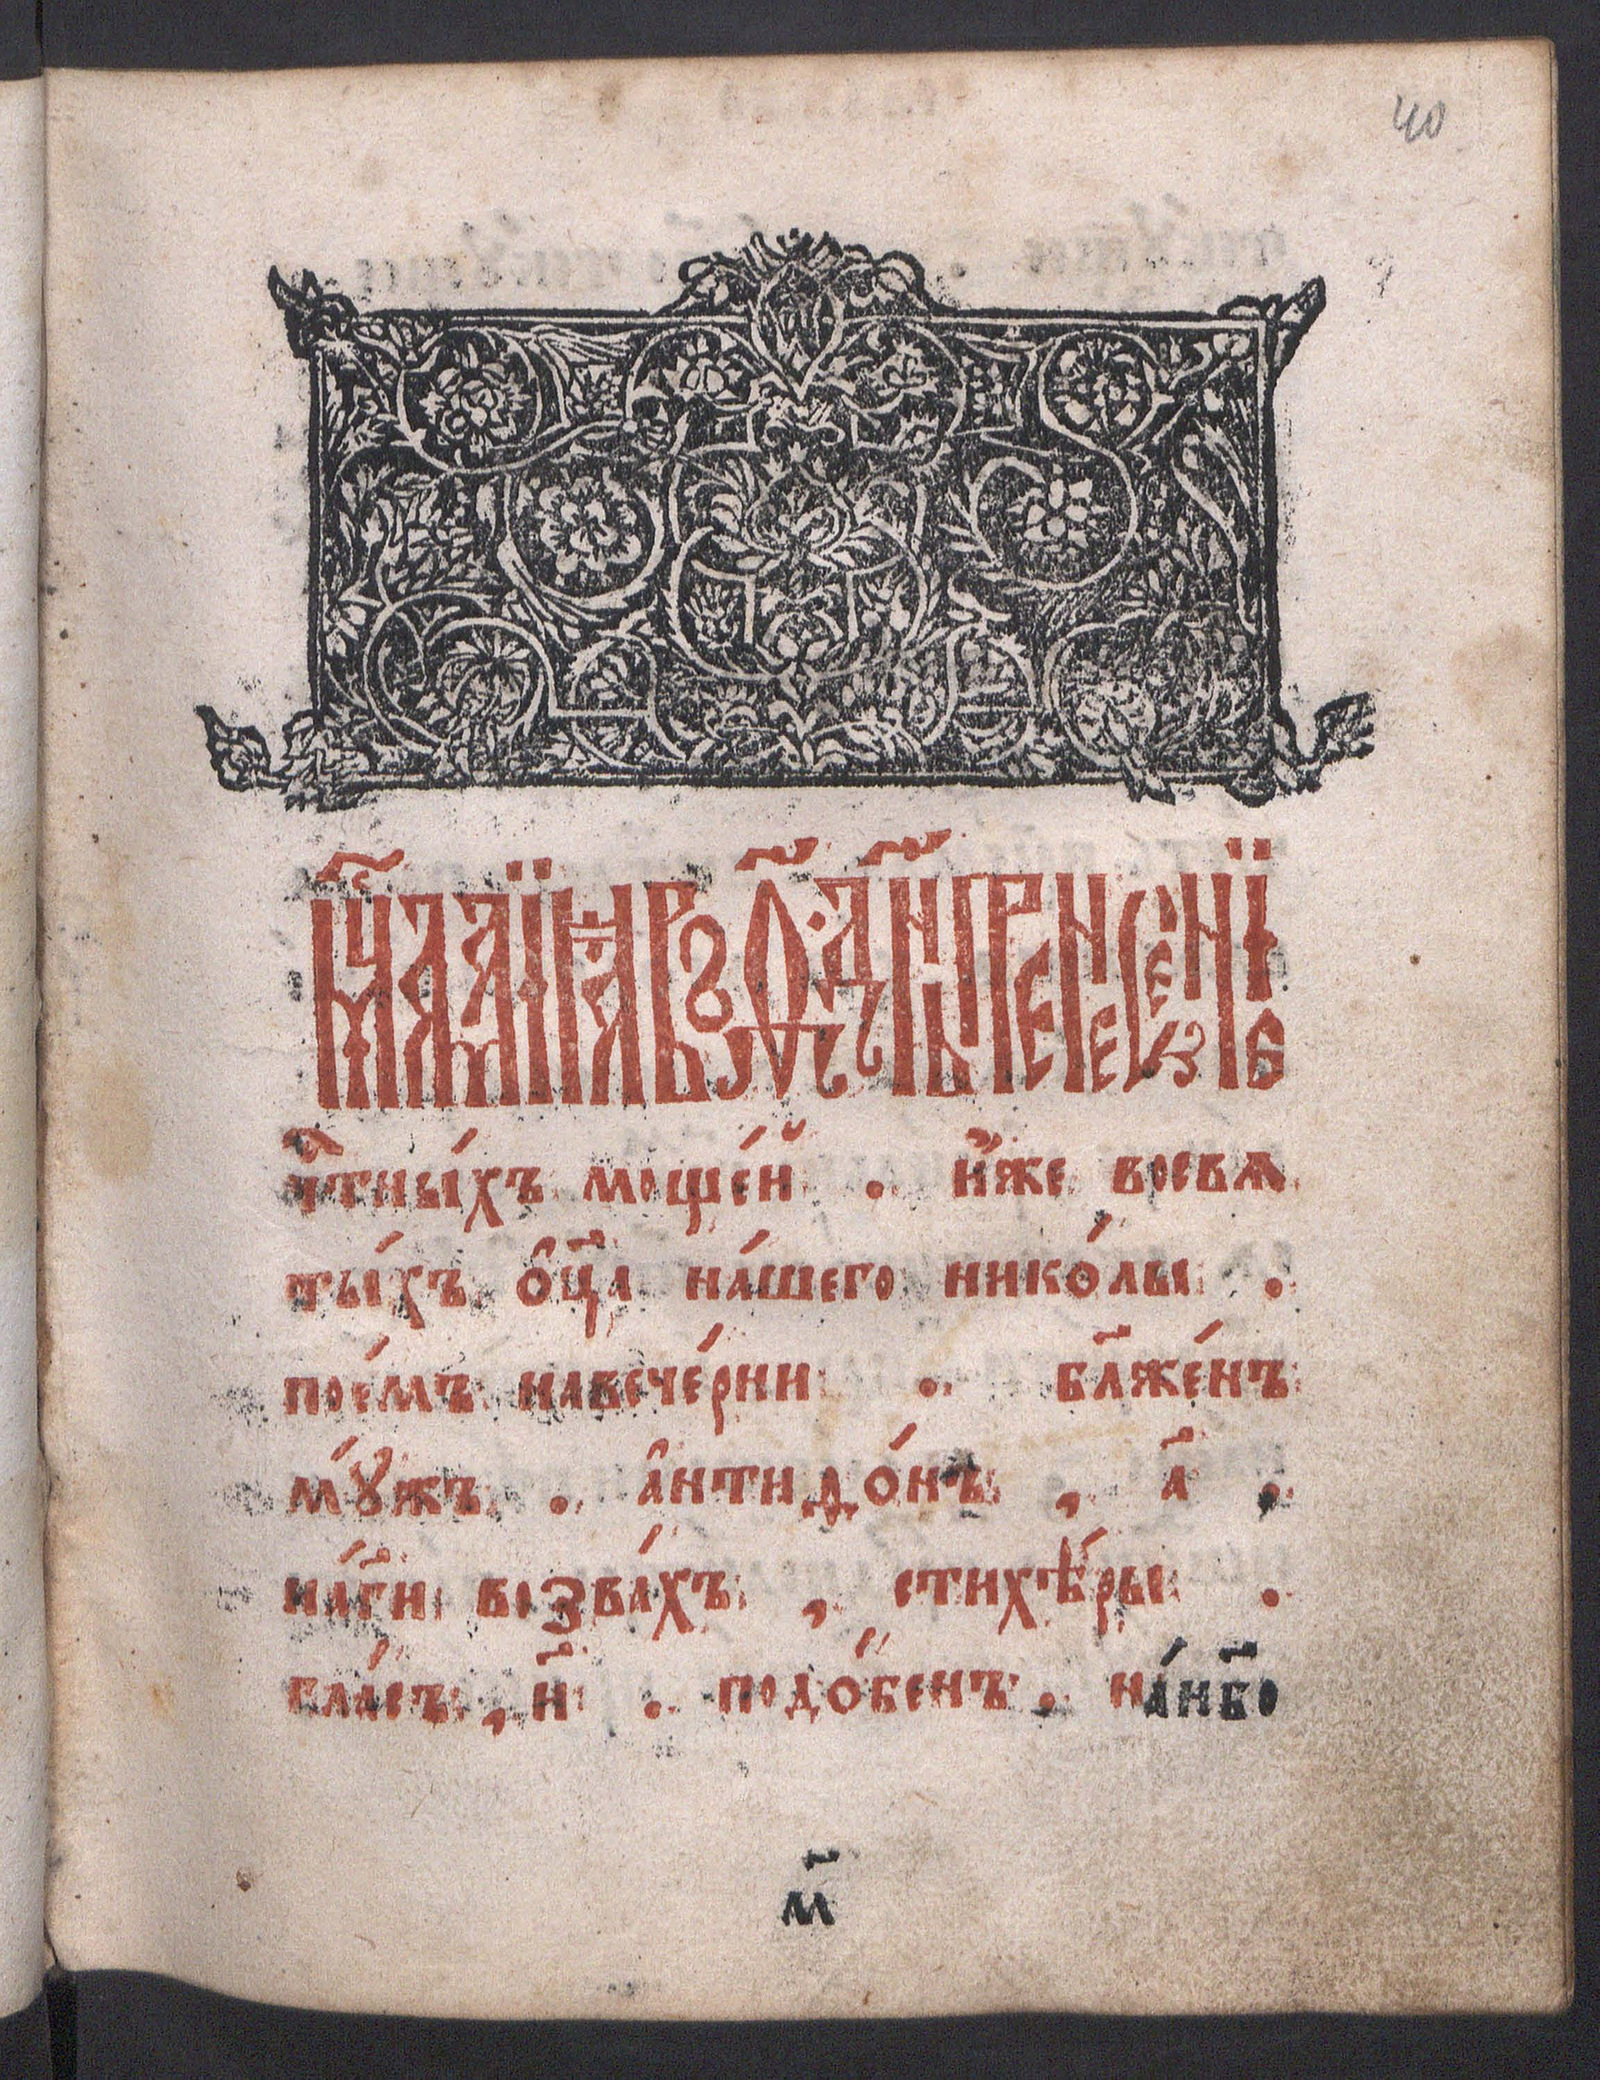 мц҃а маїа въ ѳ҃ дн҃ь пренесенїе
чⷭ҇тны́хъ моще́й . и҆́же восвѧ
ты́хъ ѻ҆ц҃а на́шего нико́лы .
пое́мъ навече́рни . бл҃же́нъ
мꙋ́жъ . а҆нтидо́нъ , а҃ .
на́гⷭ҇и возва́хъ , стихѣ́ры .
гла́съ , и҃ . подо́бенъ . на́нб҃о
м҃
40